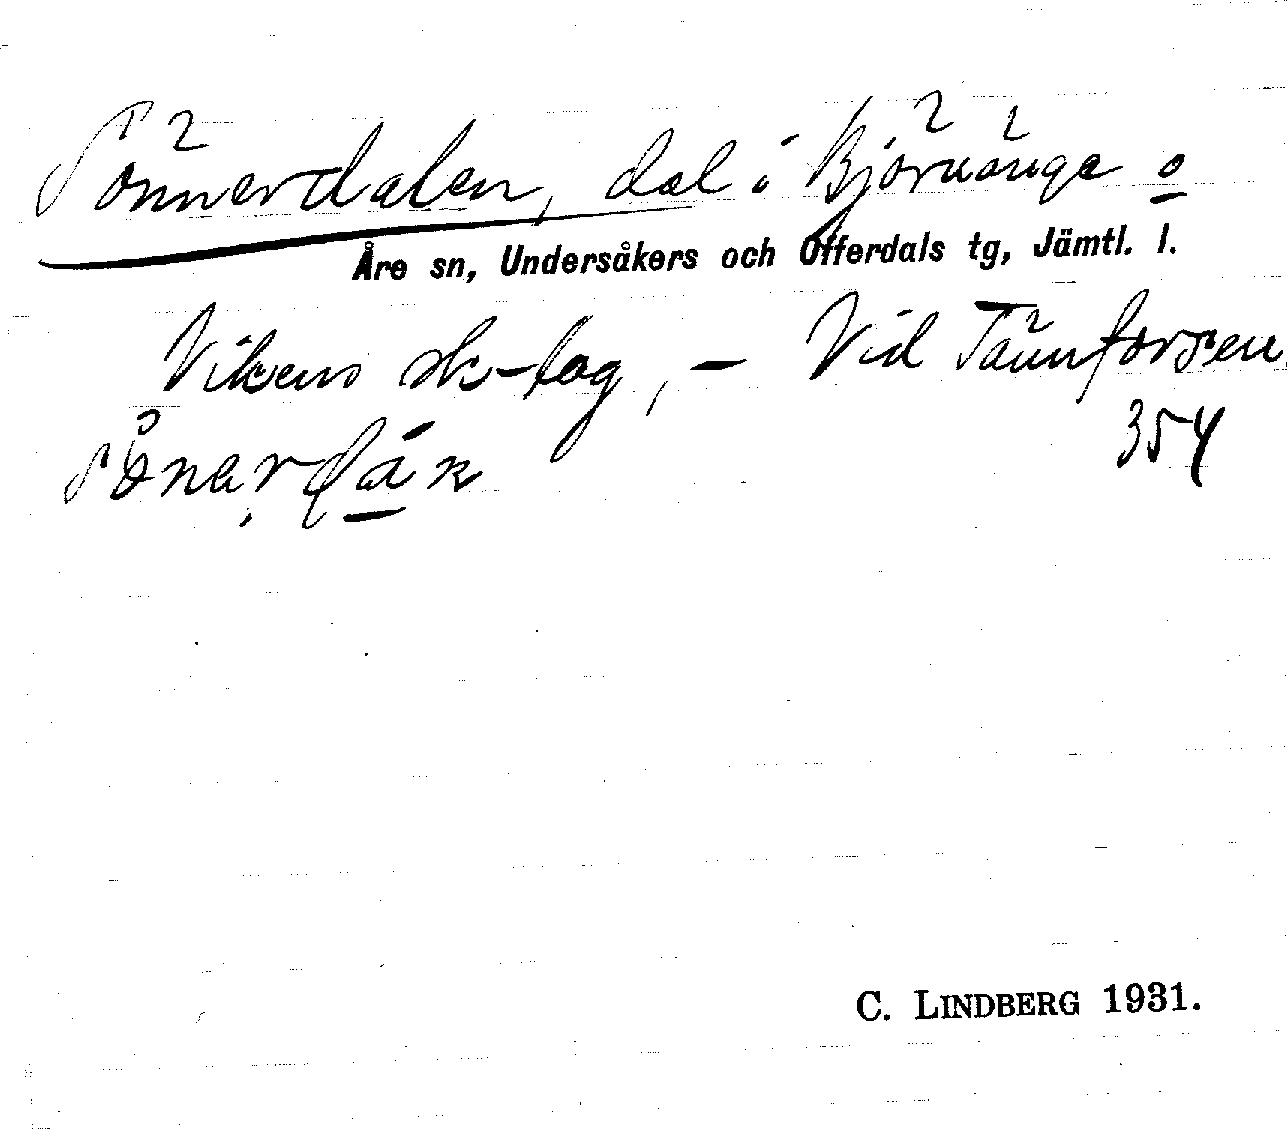 Sönnerdalen, dal i Björnänge o
Åre sn, Undersåkers och Offerdals tg, Jämtl. l.
Vikens sk-lag, – Vid Tännforsen
354
C. LINDBERG 1931.